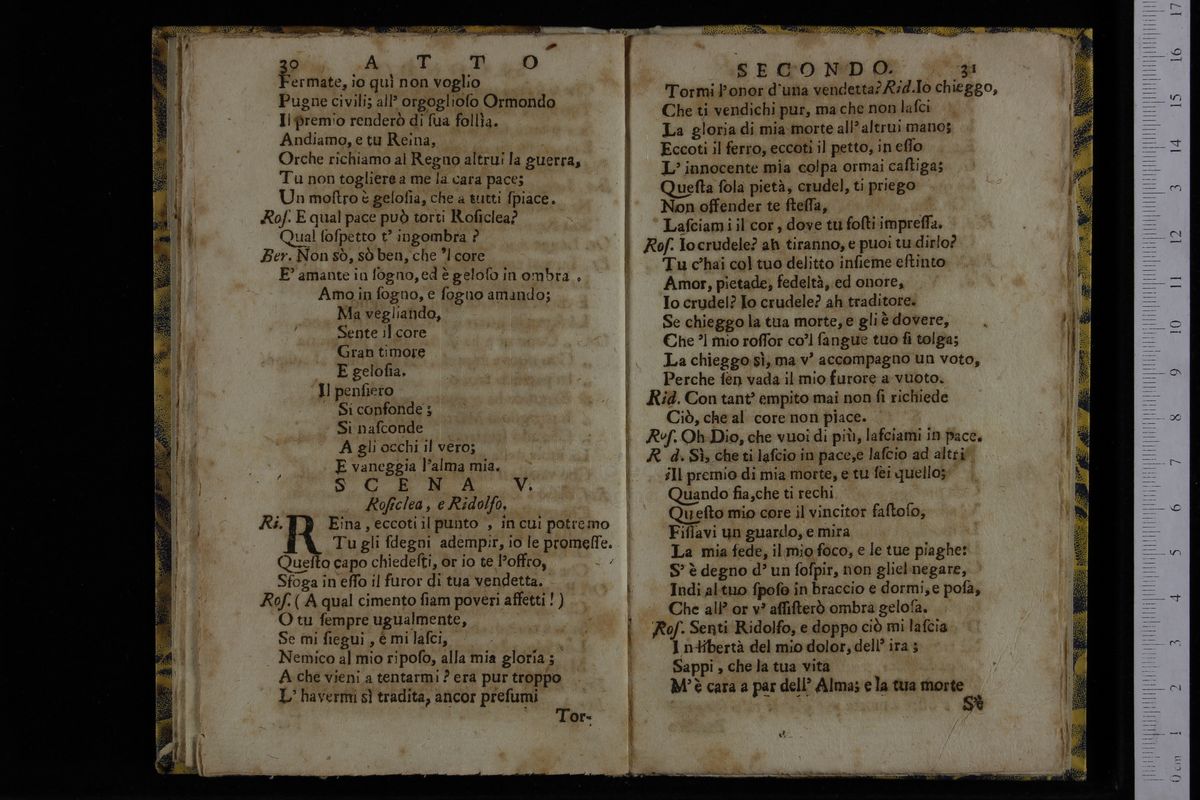 30 A T T O
Fermate, io quì non voglio
Pugne civili; all' orgoglioſo Ormondo
Il premio renderò di ſua follìa.
Andiamo, e tu Reina,
Orche richiamo al Regno altrui la guerra,
Tu non togliere a me la cara pace;
Un moſtro è geloſia, che a tutti ſpiace.
Roſ. E qual pace può torti Roſiclea?
Qual ſoſpetto t' ingombra ?
Ber. Non sò, sò ben, che 'l core
E' amante in ſogno, ed è geloſo in ombra .
Amo in ſogno, e ſogno amando;
Ma vegliando,
Sente il core
Gran timore
E geloſia.
Il penſiero
Si confonde ;
Si naſconde
A gli occhi il vero;
E vaneggia l'alma mia.
S C E N A V.
Roſiclea, e Ridolfo.
Ri. REina , eccoti il punto , in cui potremo
Tu gli ſdegni adempir, io le promeſſe.
Queſto capo chiedeſti, or io te l'offro,
Sfoga in eſſo il furor di tua vendetta.
Roſ. ( A qual cimento ſiam poveri affetti ! )
O tu ſempre ugualmente,
Se mi ſiegui , e mi laſci,
Nemico al mio ripoſo, alla mia gloria ;
A che vieni a tentarmi ? era pur troppo
L' havermi sì tradita, ancor preſumi
Tor-
SECONDO. 31
Tormi l'onor d'una vendetta? Rid. Io chieggo,
Che ti vendichi pur, ma che non laſci
La gloria di mia morte all'altrui mano;
Eccoti il ferro, eccoti il petto, in eſſo
L' innocente mia colpa ormai caſtiga;
Queſta ſola pietà, crudel, ti priego
Non offender te ſteſſa,
Laſciam i il cor , dove tu foſti impreſſa.
Roſ. Io crudele? ah tiranno, e puoi tu dirlo?
Tu c'hai col tuo delitto inſieme eſtinto
Amor, pietade, fedeltà, ed onore,
Io crudel? Io crudele? ah traditore.
Se chieggo la tua morte, e gli è dovere,
Che 'l mio roſſor co'l ſangue tuo ſi tolga;
La chieggo sì, ma v' accompagno un voto,
Perche ſen vada il mio furore a vuoto.
Rid. Con tant' empito mai non ſi richiede
Ciò, che al core non piace.
Roſ. Oh Dio, che vuoi di più, laſciami in pace.
R d. Sì, che ti laſcio in pace, e laſcio ad altri
Il premio di mia morte, e tu ſei quello;
Quando fia, che ti rechi
Queſto mio core il vincitor faſtoſo,
Fiſſavi un guardo, e mira
La mia fede, il mio foco, e le tue piaghe:
S' è degno d' un ſoſpir, non gliel negare,
Indi al tuo ſpoſo in braccio e dormi, e poſa,
Che all' or v' aſſiſterò ombra geloſa.
Roſ. Senti Ridolfo, e doppo ciò mi laſcia
In libertà del mio dolor, dell' ira ;
Sappi , che la tua vita
M' è cara a par dell' Alma; e la tua morte
S'è
0 cm 1 2 3 4 5 6 7 8 9 10 11 12 13 14 15 16 17